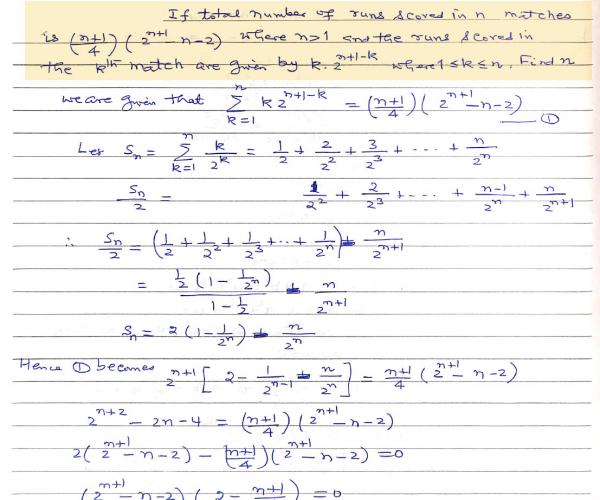 If total number of runs scored in n matches
is (n+1/4) (2^{n+1} - n - 2) where n>1 and the runs scored in
the k^{th} match are given by k. 2^{n+1-k} where 1 ≤ k ≤ n. Find n
we are given that ∑_{k=1}^{n} k 2^{n+1-k} = (n+1/4) (2^{n+1} - n - 2) — ①
Let S_n = ∑_{k=1}^{n} k/2^k = 1/2 + 2/2^2 + 3/2^3 + ... + n/2^n
S_n/2 = 1/2^2 + 2/2^3 + ... + n-1/2^n + n/2^{n+1}
∴ S_n/2 = (1/2 + 1/2^2 + 1/2^3 + ... + 1/2^n) - n/2^{n+1}
= 1/2 (1 - 1/2^n) / 1 - 1/2 - n/2^{n+1}
S_n = 2 (1 - 1/2^n) - n/2^n
Hence ① becomes 2^{n+1} [2 - 1/2^{n-1} - n/2^n] = n+1/4 (2^{n+1} - n - 2)
2^{n+2} - 2n - 4 = (n+1/4) (2^{n+1} - n - 2)
2 (2^{n+1} - n - 2) - (n+1/4) (2^{n+1} - n - 2) = 0
(2^{n+1} - n - 2) (2 - n+1/ ) = 0